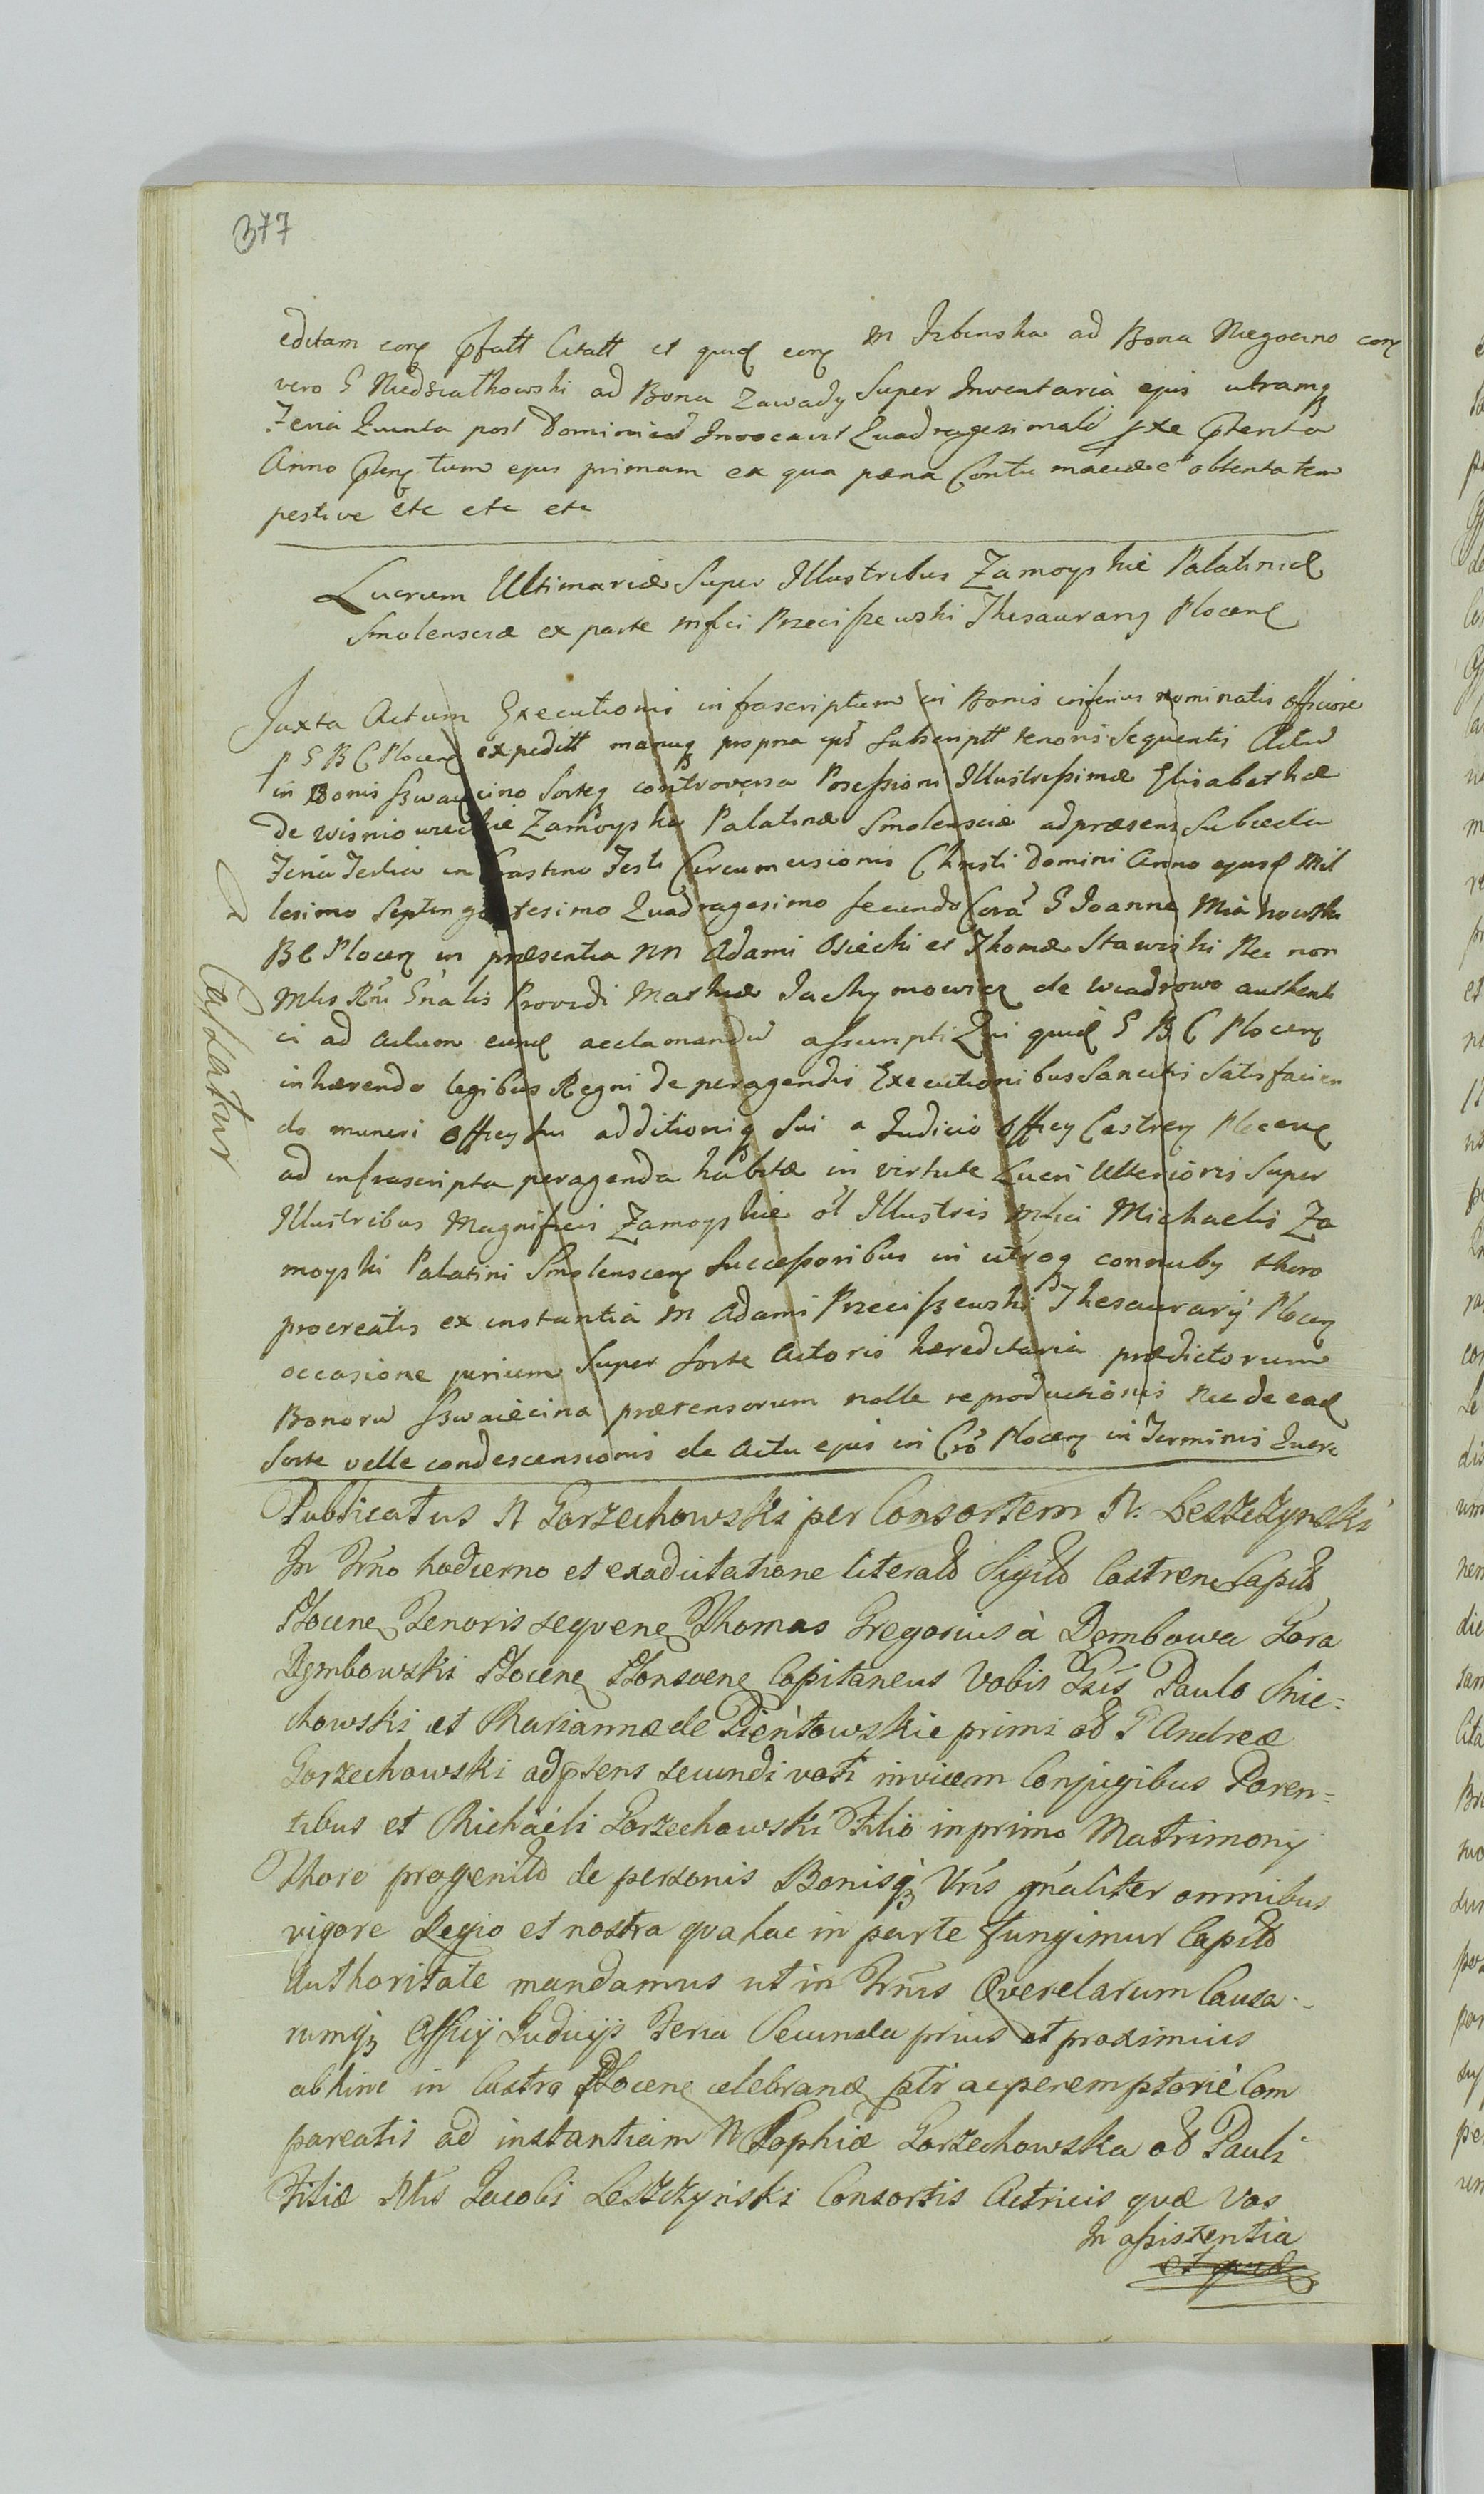 377
editam eorq pfatt Citatt et quid eorq M Irbinska ad Bona Niegocino eorq
vero G Niedziałkowski ad Bona Zawady Super Inventaria ejus utramq
Feria Quinta post Dominicã Invocavit Quadragesimale pxe pterita
Anno pterq tum ejus primam ex qua pæna Contumaciæ obtenta tem
pestive etc etc etc
Lucrum Ultimariæ Super Illustribus Zamoyskie Palatinid
Smolensciæ ex parte Mfci Przeciszewski Thesaurarij Plocenq
Juxta Actum Executionis infrascriptum in Bonis inferius nominatis officiose
p G B C Plocenq expeditt manuq propria ejus Subscriptt tenoris Sequentis Actũ
in Bonis Szwaięcino Sorteq controversa Possessioni Illustrissimæ Elisabethæ
de Wisniowieckie Zamoyska Palatinæ Smolensciæ adpræsens Subiecta
Feria Tertia in Crastino Festi Circumcisionis Christi Domini Anno ejusd Mil
lesimo Septingentesimo Quadragesimo Secundo Corã G Joanne Mianowski
B C Plocenq in præsentia NN Adami Osiecki et Thomæ Stawiski Nec non
Mtis Rñi Gñalis Providi Mathiæ Jachymowicz de Wiadrowo authenti
ci ad Actum eund acclamandũ assumpti Qui quid G B C Plocenq
inhærendo legibus Regni de peragendis Executionibus Sancitis Satisfacien
do muneri Officij Sui additioniq Sui a Judicio Officij Castren Plocenq
ad infrascripta peragenda habitæ in virtute Lucri Ulterioris Super
Illustribus Magnificis Zamoyskie ol Illustris Mfici Michaelis Za
moyski Palatini Smolenscenq Successoribus in utroq connuby thoro
procreatis ex instantia M Adami Przeciszewski Thesaurarij Plocenq
occasione jurium Super Sorte Actoris hæreditaria prædictorum
Bonorũ Szwaięcina prætensorum nolle reproductionis Nec de ead
Sorte velle condescensionis de Actu ejus in Crõ Plocenq in Terminis Quere
Cassatur
Publicatus N Gorzechowski per Consortem N: Leszczynski
In Trno hodierno et exadcitatione literali Sigillo Castren Capit
Plocene Tenoris sequene Thomas Gregorius à Dembowa Gora
Dembowski Plocene Plonscene Capitaneus Vobis Gsis Paulo Snie=
chowski et Mariannæ de Pieńtowskie primi ol G Andreæ
Gorzechowski adpsens secundi voti invicem Conjugibus Paren=
tibus et Michaeli Gorzechowski Filio in primo Matrimony
Thoro progenito de personis Bonisq Vris gnaliter omnibus
vigore Regio et nostra qua hac in parte fungimur Capit
Authoritate mandamus ut in Trnis Querelarum Causa-
rumq Officij Judicijs Feria Secunda prius et proximius
abhinc in Castro Plocene celebrand ptr acperemptoriè Com
pareatis ad instantiam N Sophiæ Gorzechowska ol Pauli
Filiæ Nlis Jacobi Leszczyński Consortis Actricis quæ Vos
In assistentia
et quid